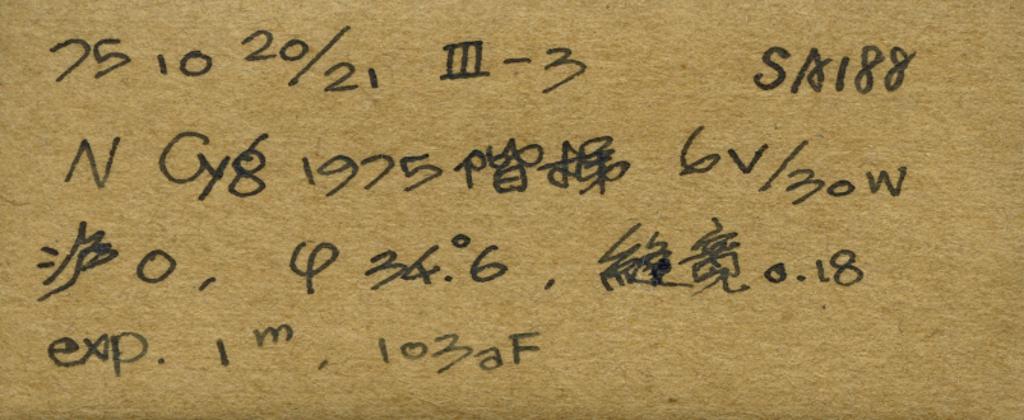 75 10 20/21 III-3 SA188
N Cyg 1975 階梯 6V/30W
沪 0, φ 34.°6, 縫寛 0.18
exp. 1m, 103aF